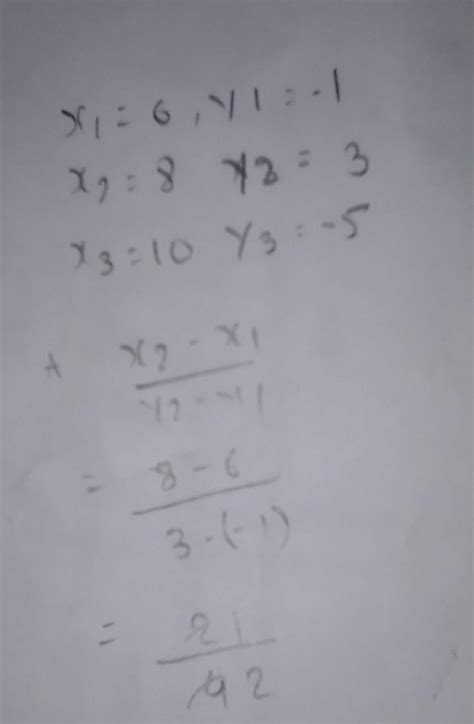 x1 = 6, y1 = -1
x2 = 8 y2 = 3
x3 = 10 y3 = -5
x2 - x1
y2 - y1
= 8 - 6
3 - (-1)
= 2 1
4 2